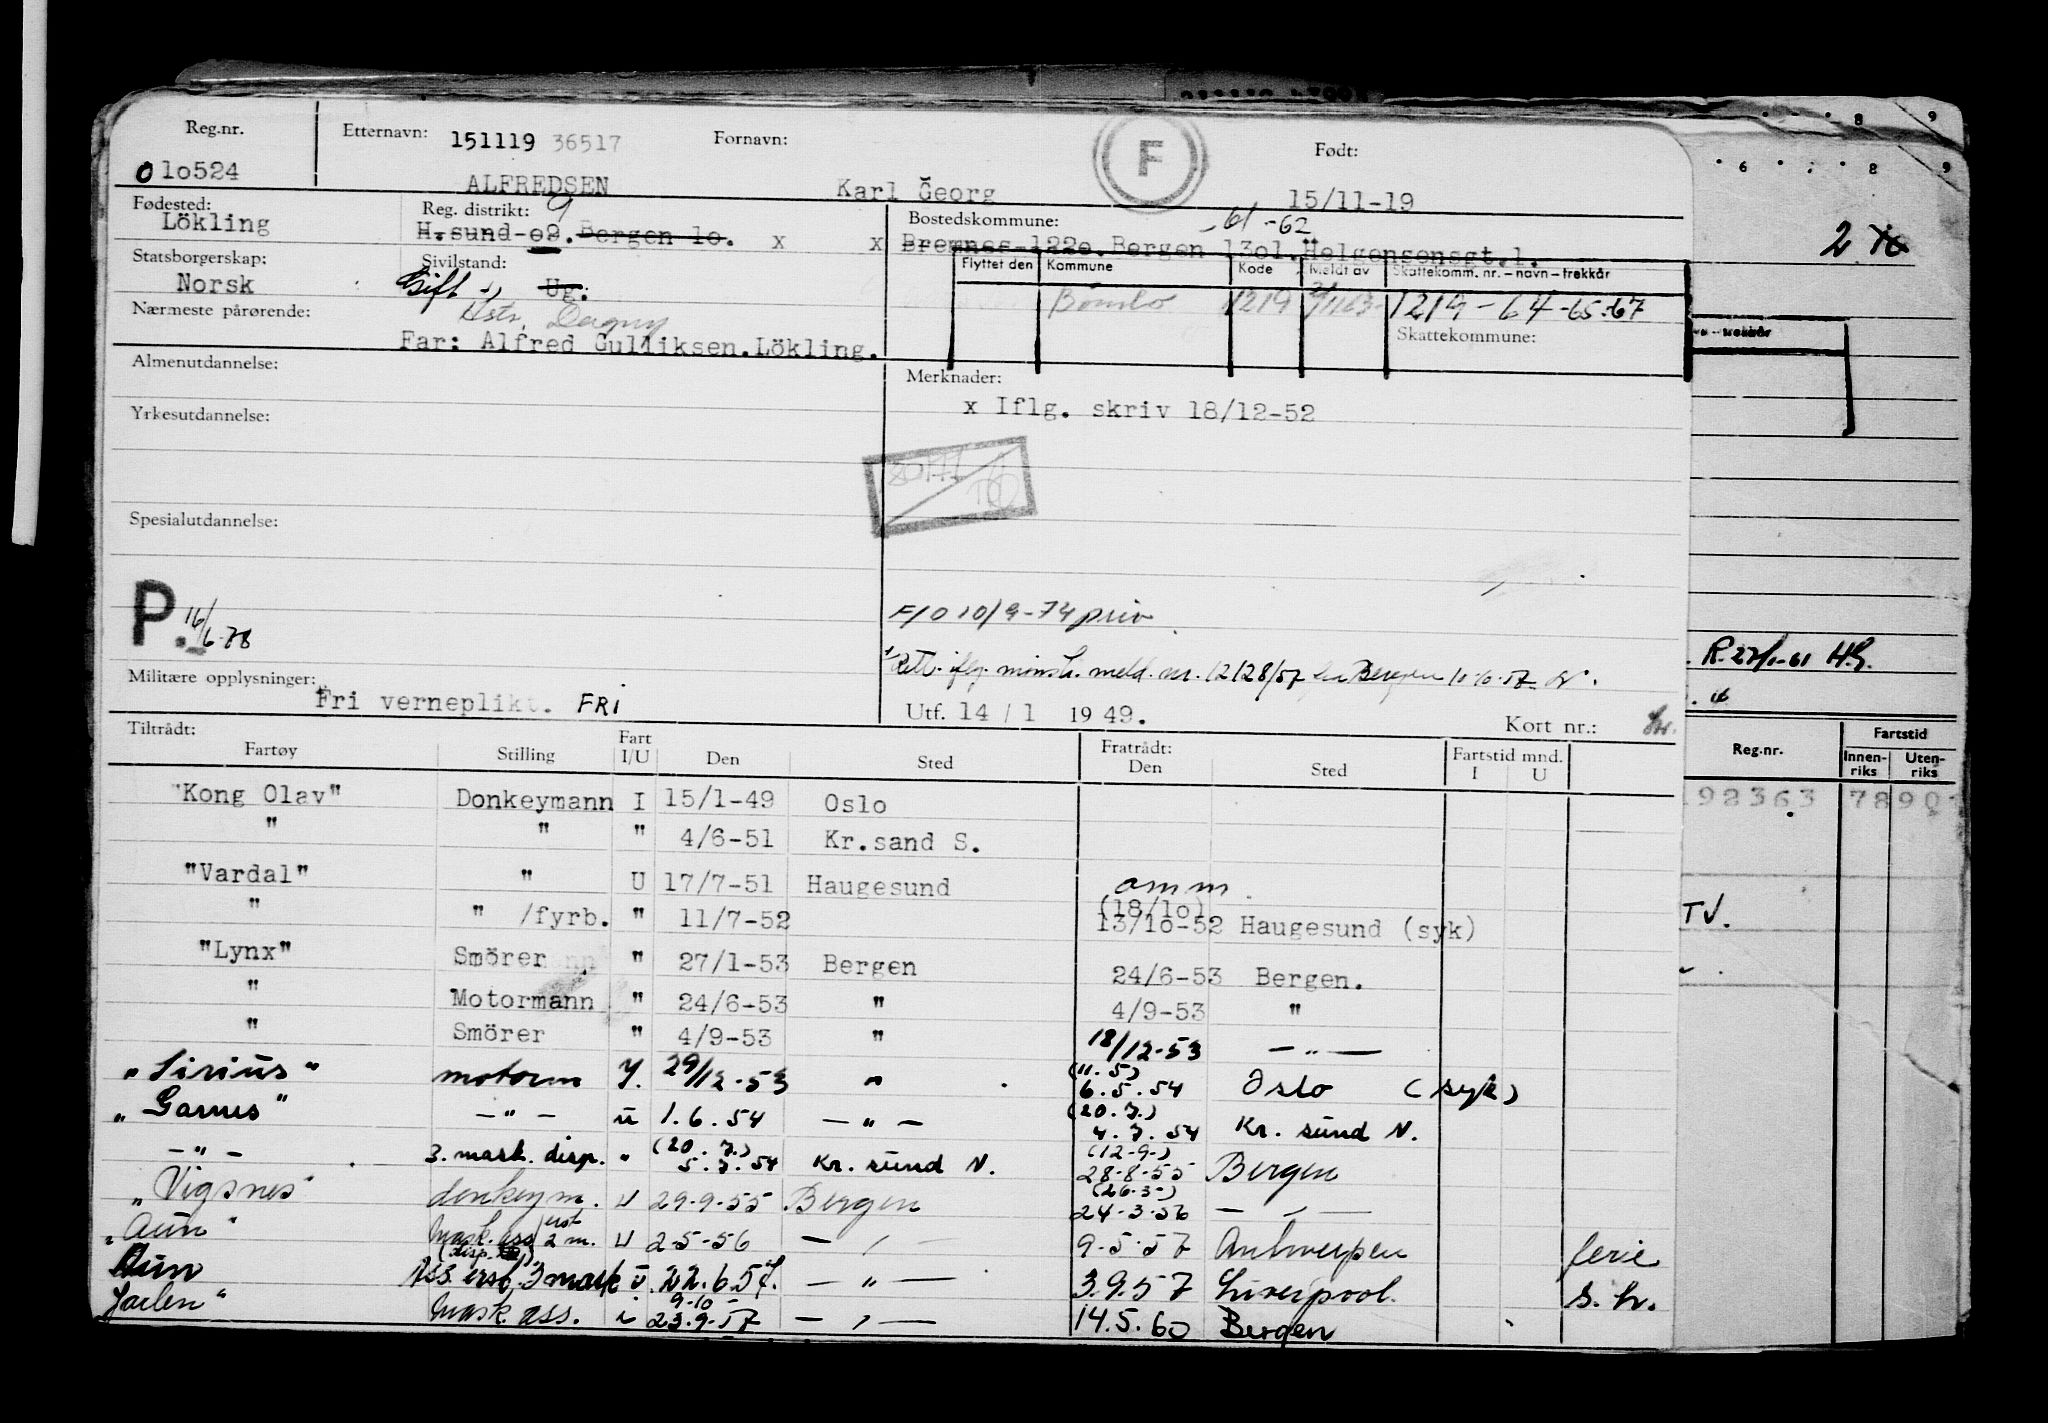 Reg.nr. Etternavn: 151119 36517 Fornavn: F Født:
0 1o524 ALFREDSEN Karl Georg 15/11-19
Fødested: Reg. distrikt: 9 Bostedskommune: -61-62
Lökling H.sund-o9. Bergen 1o. x x Bremnes 122o. Bergen 13o1. Helgensensgt.1.
Statsborgerskap: Sivilstand: Flyttet den Kommune Kode Meldt av Skattekomm. nr. - navn - trekkår
Norsk Gift Ug. Bömlo 1219 1219 - 64 -65-67
Nærmeste pårørende: Hstr. Dagny Skattekommune:
Far: Alfred Gulliksen. Lökling.
Almenutdannelse: Merknader:
Yrkesutdannelse: x Iflg. skriv 18/12-52
Spesialutdannelse:
P. 16/6-78
F/O 10/9-74 priv
Rett. iflg. mønstr. meld. nr. 12128/57 fra Bergen
Militære opplysninger: Fri verneplikt. FRI Utf. 14 / 1 19 49. Kort nr.:
Tiltrådt: Fratrådt:
Fartøy Stilling Fart I/U Den Sted Den Sted Fartstid mnd. I U
"Kong Olav" Donkeymann I 15/1-49 Oslo
" " " 4/6-51 Kr.sand S.
"Vardal" " U 17/7-51 Haugesund amm
" " /fyrb. " 11/7-52 (18/1o) 13/1o-52 Haugesund (syk)
"Lynx" Smörer " 27/1-53 Bergen 24/6-53 Bergen.
" Motormann " 24/6-53 " 4/9-53 "
" Smörer " 4/9-53 " 18/12-53 — " —
"Sirius" motorm Y. 29/12-53 " (11.5) 6.5.54 Oslo (syk)
"Garnes" — " — u 1.6.54 — " — (20.7.) 4.7.54 Kr. sund N.
— " — 3. mask. disp. " (20.7.) 5.7.54 Kr. sund N. (12-9-) 28-8-55 Bergen
"Vigsnes" donkeym. u 29-9-55 Bergen (26.3-) 24-3-56 — " —
"Aun" Mask. ass erst 2 m. (disp.) u 2-5-56 — " — 9-5-57 Antwerpen ferie
Aun Ass. erst. 3 mask u 22.6.57. — " — 3.9.57 Liverpool. s. hr.
Mask. ass. i 9-10- 23.9-57 — " — 14.5.60 Bergen
8 9
6 8 9
2
R. 27/1-61 H.S.
Reg.nr. Fartstid
Innenriks Utenriks
192363 7890
TV.